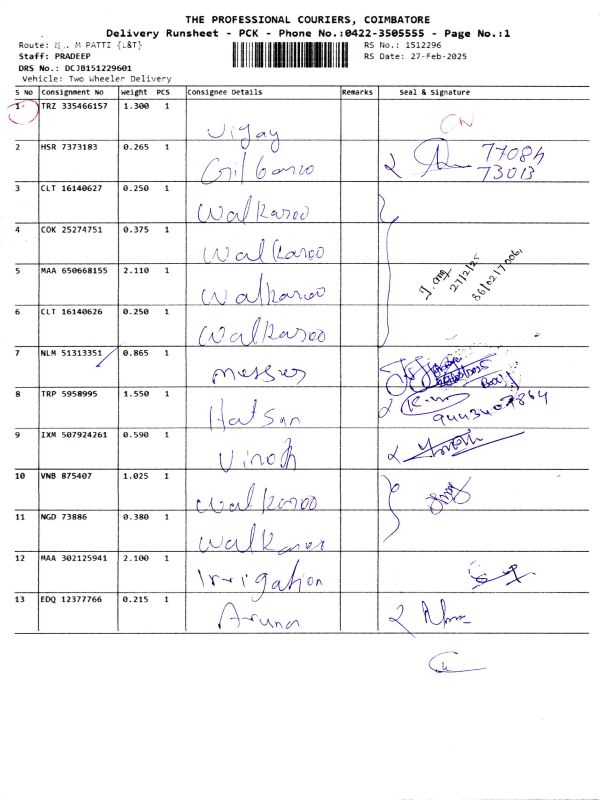 THE PROFESSIONAL COURIERS, COIMBATORE
Delivery Runsheet - PCK - Phone No.:0422-3505555 - Page No.:1
Route: M PATTI {L&T}
RS No.: 1512296
Staff: PRADEEP
RS Date: 27-Feb-2025
DRS No.: DCJB151229601
Vehicle: Two Wheeler Delivery
S No Consignment No Weight PCS Consignee Details Remarks Seal & Signature
1 TRZ 335466157 1.300 1 Vijay
2 HSR 7373183 0.265 1 77084
73013
3 CLT 16140627 0.250 1 Walkaroo
4 COK 25274751 0.375 1 Walkaroo
5 MAA 650668155 2.110 1 Walkaroo
27/2/25
6 CLT 16140626 0.250 1 Walkaroo
7 NLM 51313351 0.865 1
8 TRP 5958995 1.550 1 Hatsun
9443407864
9 IXM 507924261 0.590 1 Vinoth
10 VNB 875407 1.025 1 Walkaroo
11 NGD 73886 0.380 1 Walkaroo
12 MAA 302125941 2.100 1 Irrigation
13 EDQ 12377766 0.215 1 Aruna